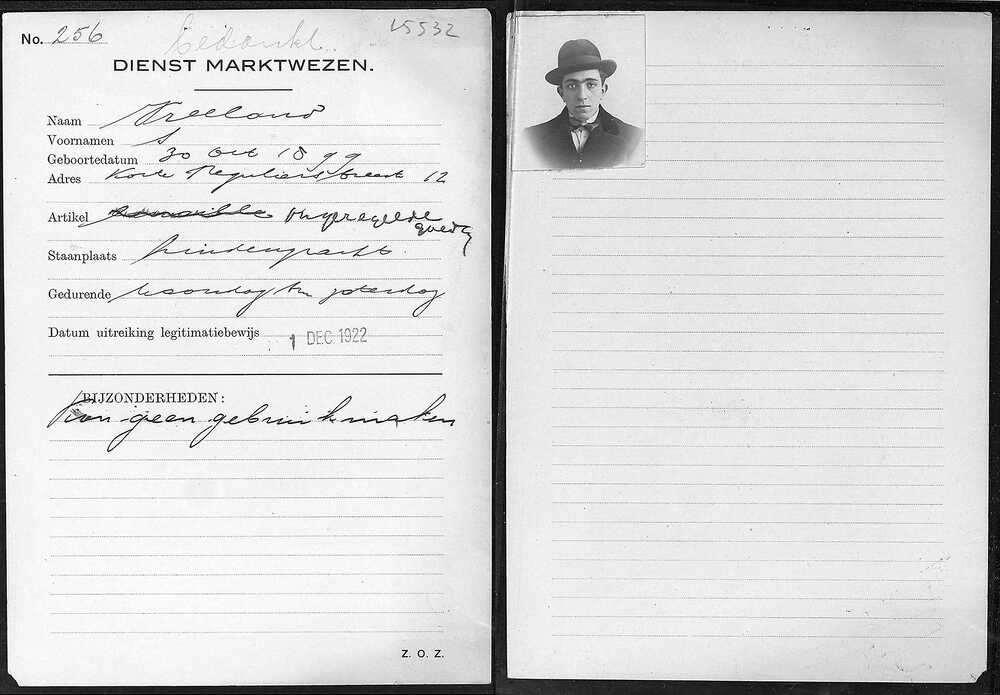 No. 256
Bedankt
15532
DIENST MARKTWEZEN.
Naam Vreeland
Voornamen S
Geboortedatum 30 Oct 1899
Adres Korte Reguliersbreest 12
Artikel Ongeregelde
goed
Staanplaats Lindengracht
Gedurende Maandag t/m Zaterdag
Datum uitreiking legitimatiebewijs 1 DEC. 1922
BIJZONDERHEDEN:
Kan geen gebruik maken
Z. O. Z.